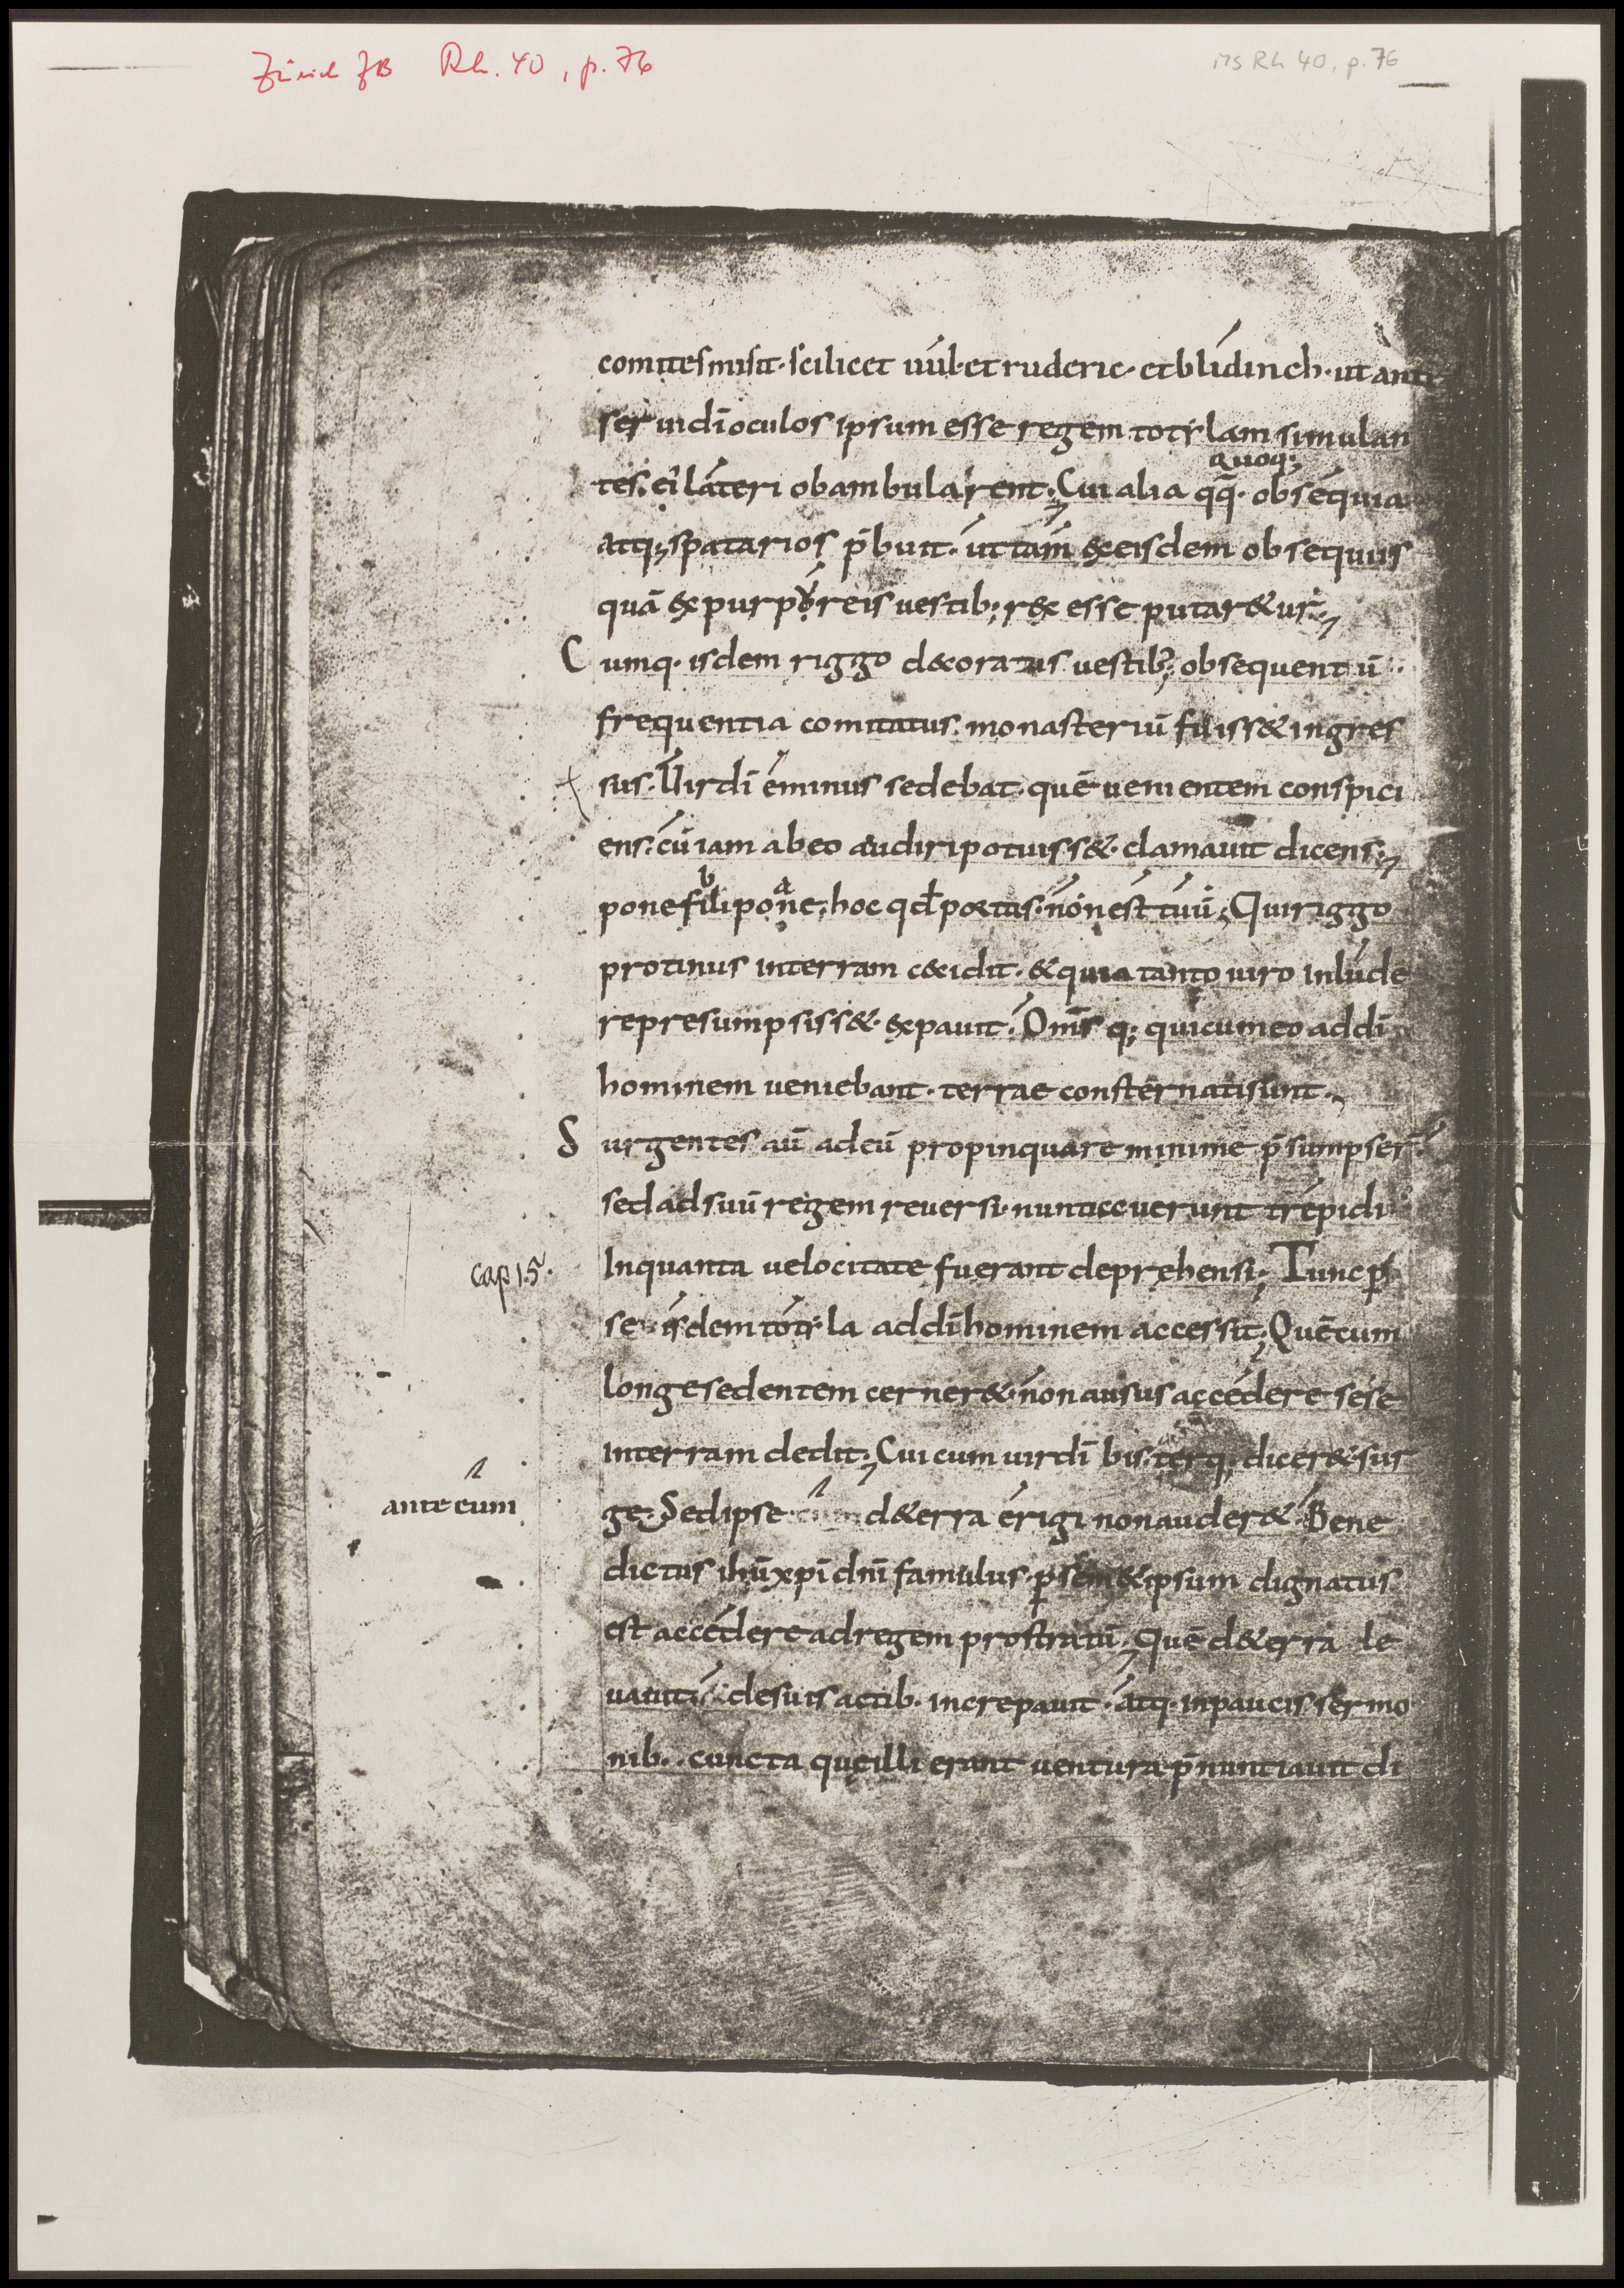 Zürich ZB Rh. 40, p. 76
MS Rh 40, p. 76
comites misit· scilicet uul· et ruderic· et blidinch· ut ante
ser ui dī oculos ipsum esse regem totilam simulan
quoq;
tes. ei lateri obambularent; Cui alia qq̄· obsequia
atq; spatarios p̄buit· ut tam ex eisdem obsequiis
quā ex purpureis uestib; rex esse putar&ur;
Cumq· isdem riggo decoratus uestib; obsequentū
frequentia comitatus· monasteriū fuiss& ingres
sus. Uir dī eminus sedebat· quē uenientem conspici
ens· cū iam ab eo audiri potuiss&· clamauit dicens;
b a
pone fili pone; hoc qđ portas· non est tuū; Qui riggo
protinus in terram cecidit· & quia tanto uiro inlude
re presumpsiss&· expauit. Om̄s q; qui cum eo ad dī
hominem ueniebant· terrae consternati sunt·
Surgentes aū ad eū propinquare minime p̄sumpser̄
sed ad suū regem reuersi· nuntiauerunt trepidi
cap 15. In quanta uelocitate fuerant deprehensi; Tunc p
se isdem totila ad dī hominem accessit; Quē cum
longe sedentem cerner&· non ausus accedere sese
in terram dedit; Cui cum uir dī bis terq; dicer& sur
ante eum ge· Sed ipse cum d&erra erigi non auder&· Bene
dictus ihū xpī dnī famulus p sem& ipsum dignatus
est accedere ad regem prostratū; quē d&erra le
uauit· de suis actib· increpauit· atq· in paucis sermo
nib· cuncta que illi erant uentura p̄nuntiauit di